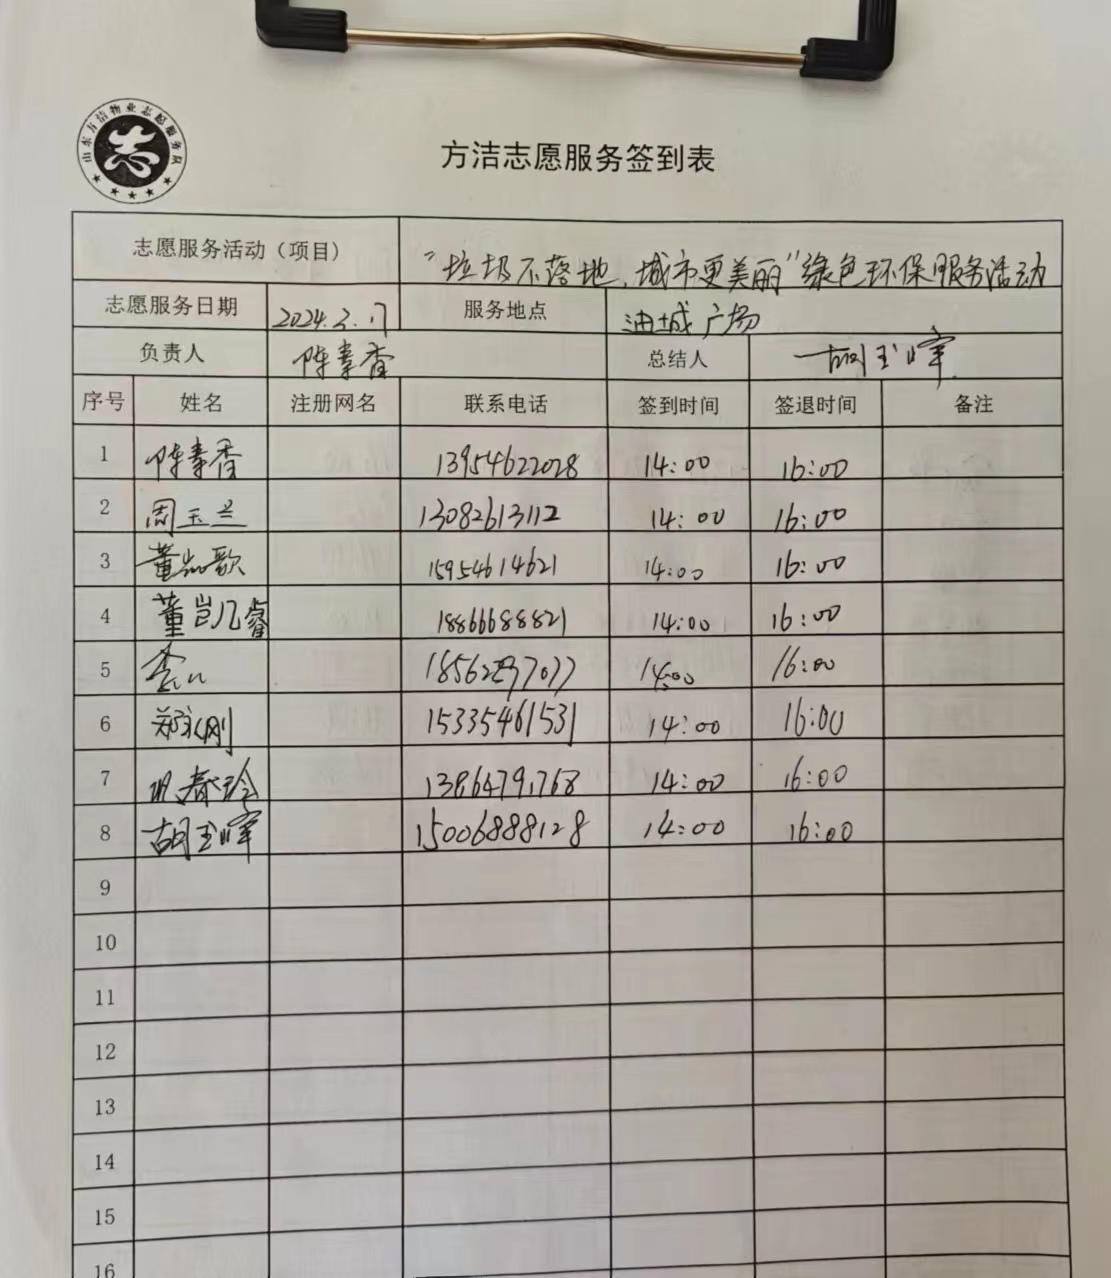 山东方洁物业志愿服务队
志
方洁志愿服务签到表
志愿服务活动（项目） “垃圾不落地，城市更美丽”绿色环保服务活动
志愿服务日期 2024.3.17 服务地点 油城广场
负责人 陈素香 总结人 胡玉峰
序号 姓名 注册网名 联系电话 签到时间 签退时间 备注
1 陈素香 13954622028 14:00 16:00
2 周玉兰 13082613112 14:00 16:00
3 董 歌 15954614621 14:00 16:00
4 董凯睿 18866688821 14:00 16:00
5 14:00 16:00
6 郑永刚 15335461531 14:00 16:00
7 巩春玲 14:00 16:00
8 胡玉峰 15006888128 14:00 16:00
9
10
11
12
13
14
15
16